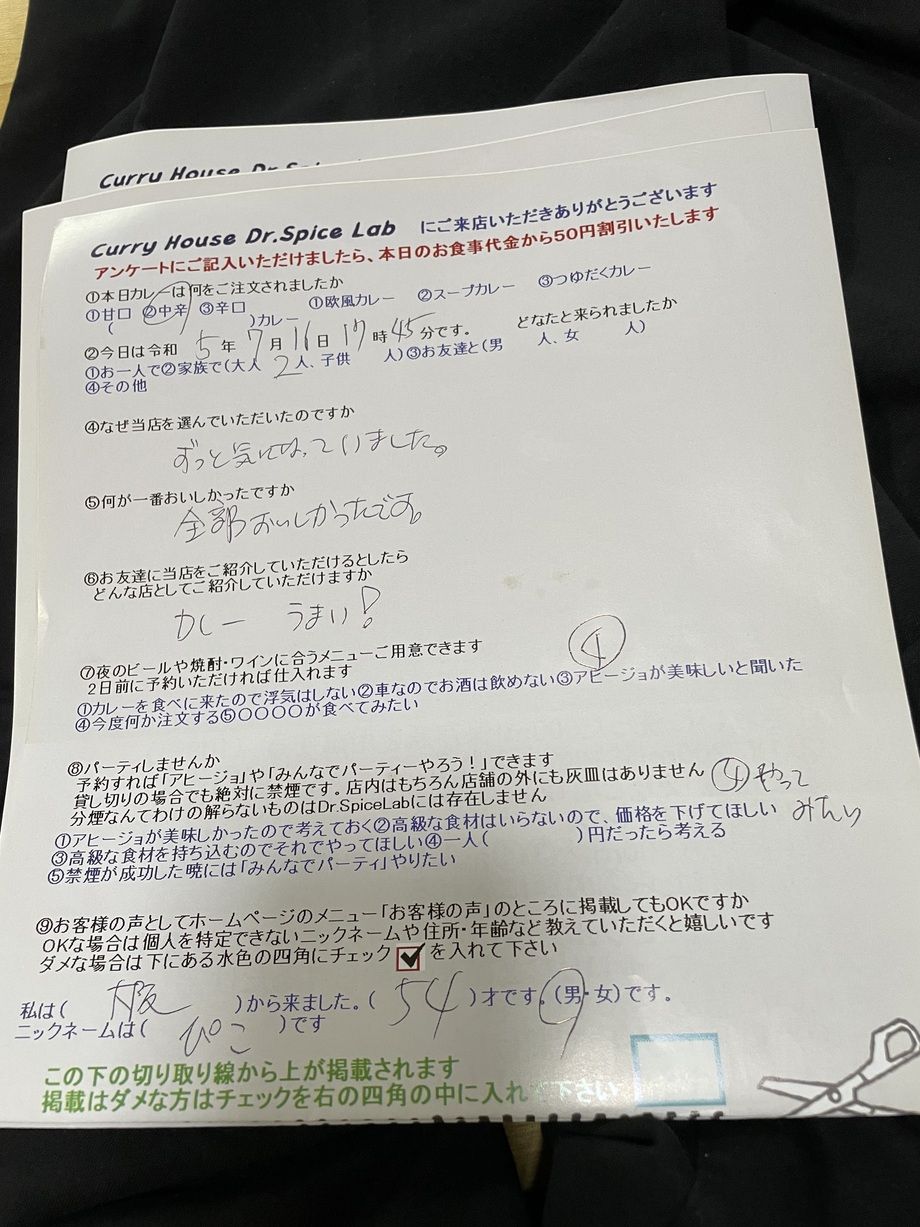 Curry House Dr.Sp
Curry House Dr.Spice Lab にご来店いただきありがとうございます
アンケートにご記入いただけましたら、本日のお食事代金から50円割引いたします
①本日カレーは何をご注文されましたか
①甘口 ②中辛 ③辛口 ①欧風カレー ②スープカレー ③つゆだくカレー
( )カレー
②今日は令和 5 年 7 月 16 日 17 時 45 分です。 どなたと来られましたか
①お一人で②家族で(大人 2 人、子供 人)③お友達と(男 人、女 人)
④その他
④なぜ当店を選んでいただいたのですか
ずっと気になっていました。
⑤何が一番おいしかったですか
全部おいしかったです。
⑥お友達に当店をご紹介していただけるとしたら
どんな店としてご紹介していただけますか
カレー うまい!
⑦夜のビールや焼酎・ワインに合うメニューご用意できます ④
2日前に予約いただければ仕入れます
①カレーを食べに来たので浮気はしない②車なのでお酒は飲めない③アヒージョが美味しいと聞いた
④今度何か注文する⑤〇〇〇〇が食べてみたい
⑧パーティしませんか
予約すれば「アヒージョ」や「みんなでパーティーやろう!」できます
貸し切りの場合でも絶対に禁煙です。店内はもちろん店舗の外にも灰皿はありません ④やって
分煙なんてわけの解らないものはDr.SpiceLabには存在しません
①アヒージョが美味しかったので考えておく②高級な食材はいらないので、価格を下げてほしい
③高級な食材を持ち込むのでそれでやってほしい④一人( )円だったら考える
⑤禁煙が成功した暁には「みんなでパーティ」やりたい
⑨お客様の声としてホームページのメニュー「お客様の声」のところに掲載してもOKですか
OKな場合は個人を特定できないニックネームや住所・年齢など教えていただくと嬉しいです
ダメな場合は下にある水色の四角にチェック を入れて下さい
私は( 大阪 )から来ました。( 54 )才です。(男・女)です。
ニックネームは( ぴこ )です
この下の切り取り線から上が掲載されます
掲載はダメな方はチェックを右の四角の中に入れて下さい